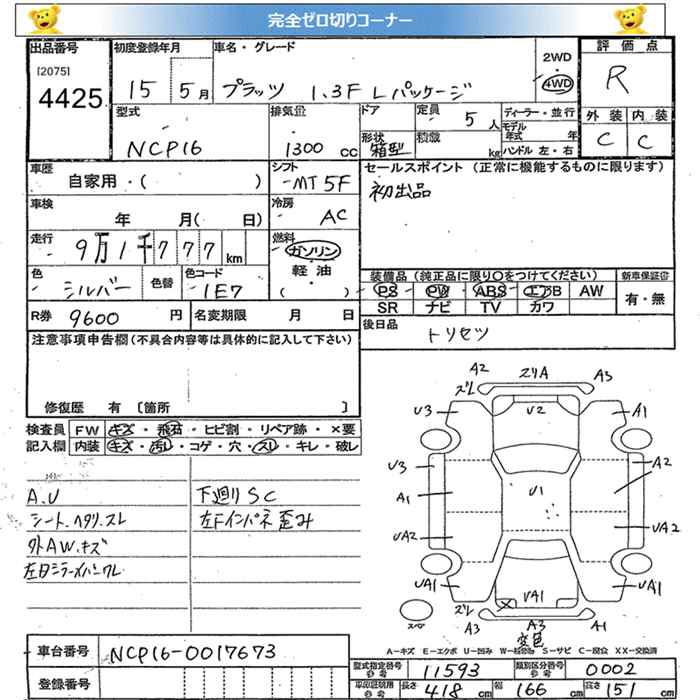 完全ゼロ切りコーナー
出品番号 初度登録年月 車名・グレード 2WD・4WD 評価点
[2075] 4425 15 5月 プラッツ 1.3F Lパッケージ R
型式 NCP16 排気量 1300 cc ドア 定員 5人 ディーラー・並行 外装 内装
形状 箱型 積載 kg モデル年式 年 ハンドル 左・右 C C
車歴 自家用・( ) シフト MT 5F セールスポイント (正常に機能するものに限ります)
初出品
車検 年 月( 日) 冷房 AC
走行 9万1千777km 燃料 ガソリン 軽油 ( )
色 シルバー 色替 色コード 1E7 装備品 (純正品に限り○をつけてください) 新車保証書
PS PW ABS エアB AW 有・無
SR ナビ TV カワ
R券 9600円 名変期限 月 日 後日品 トリセツ
注意事項申告欄(不具合内容等は具体的に記入して下さい)
修復歴 有 〔箇所 〕
検査員 FW キズ・飛石・ヒビ割・リペア跡・×要
記入欄 内装 キズ・汚レ・コゲ・穴・スレ・キレ・破レ
A.U 下廻りSC
シート.ヘタリ.スレ 左Fインパネ歪み
外AW.キズ
左日ミラーメハンクレ
A2 スリA A3
ズレ
U3 U2 A1
U3 A2
A1 U1
UA2 UA2
UA1 UA1 UA1
ズレ
スペア A3 A3 A1
変色
A－キズ E－エクボ U－凹み W－補修跡 S－サビ C－腐食 XX－交換済
車台番号 NCP16-0017673
型式指定番号参考 11593 類別区分番号参考 0002
登録番号
車庫証明用参考 長さ 418cm 幅 166cm 高さ 151cm